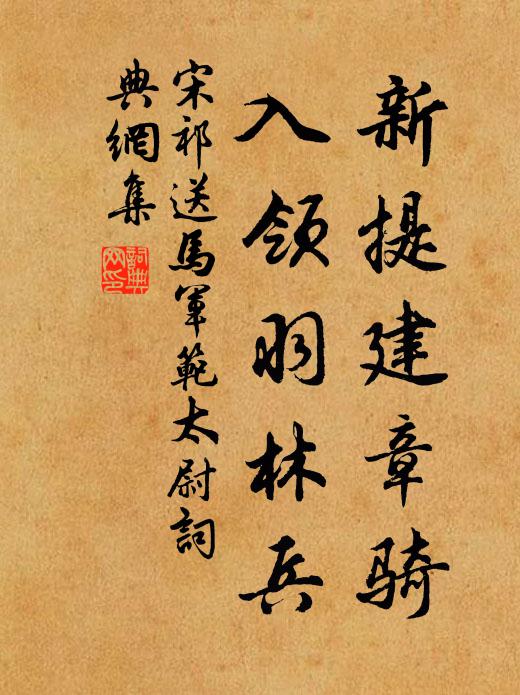 新提建章骑
入领羽林兵
宋祁送馬軍範太尉詞
典網集
詞典
网印